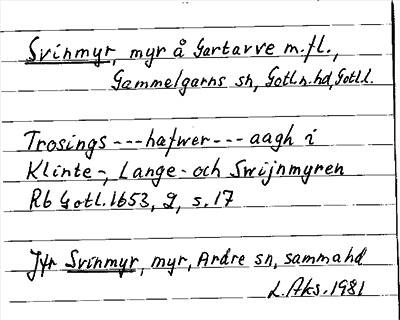 Svinmyr, myr å Gartarve m.fl.,
Gammelgarns sn, Gotl.n.hd, Gotl.l.
Trosings---hafwer---aagh i
Klinte-, Lange- och Swijnmyren
Rb Gotl. 1653, 2, s. 17
Jfr Svinmyr, myr, Ardre sn, samma hd
L. Aks. 1981